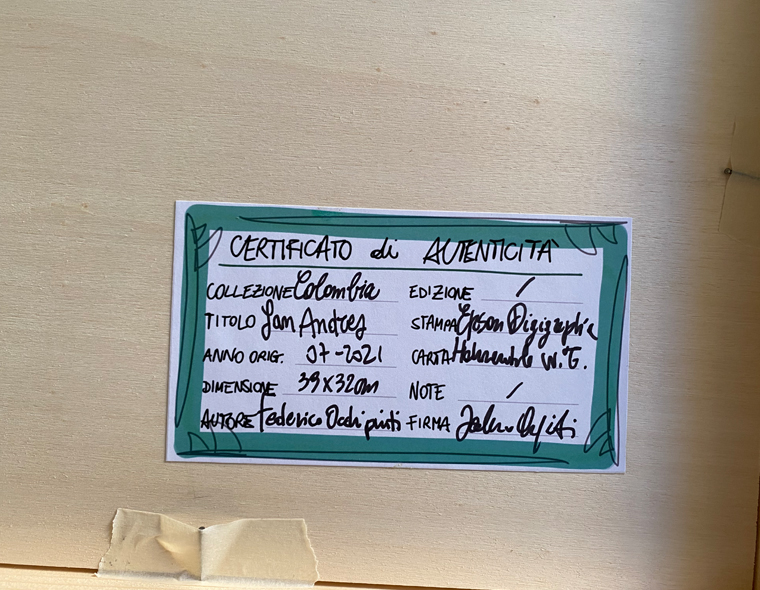 CERTIFICATO di AUTENTICITÀ
COLLEZIONE Colombia
TITOLO San Andres
ANNO ORIG. 07-2021
DIMENSIONE 39x32cm
AUTORE Federico
EDIZIONE /
STAMPA Epson Digigraphie
CARTA W.T.
NOTE /
FIRMA